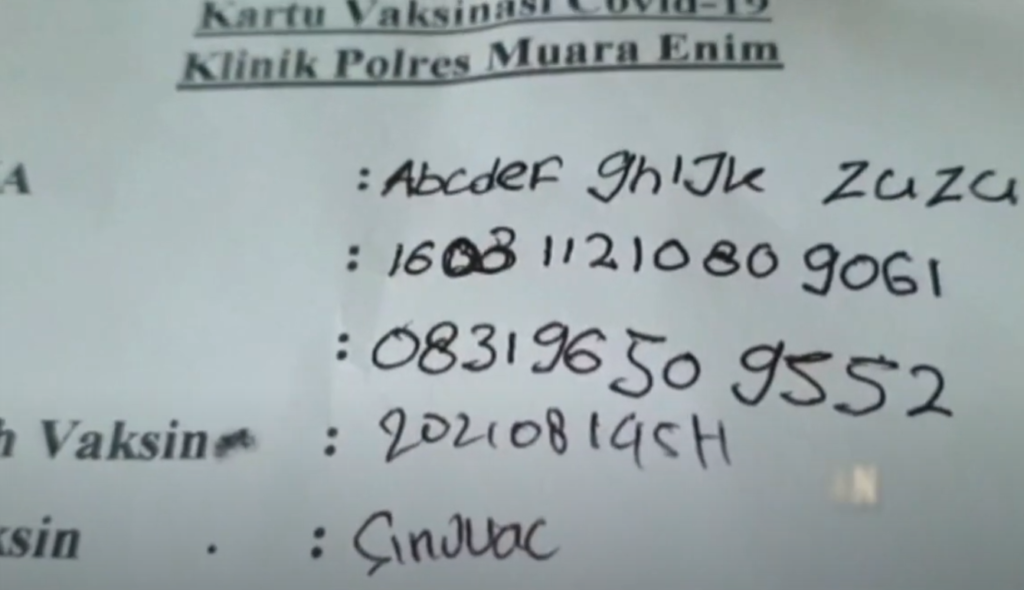 Kartu Vaksinasi Covid-19
Klinik Polres Muara Enim
A : Abcdef ghiJk zuzu
: 1608 1121080 9061
: 0831 9650 9552
h Vaksin : 20210819SH
ksin : Sinovac